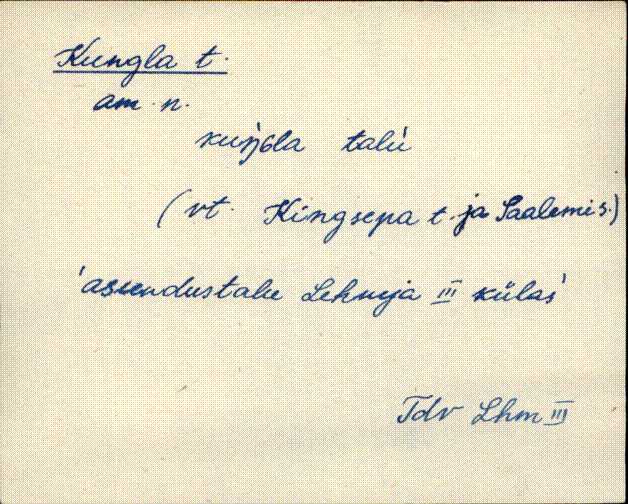 Kungla t.
am. n.
kuŋ̀ɢla talù
(vt. Kingsepa t. ja Saalemi s.)
'asundustalu Lehmja III külas'
Tdv Lhm III